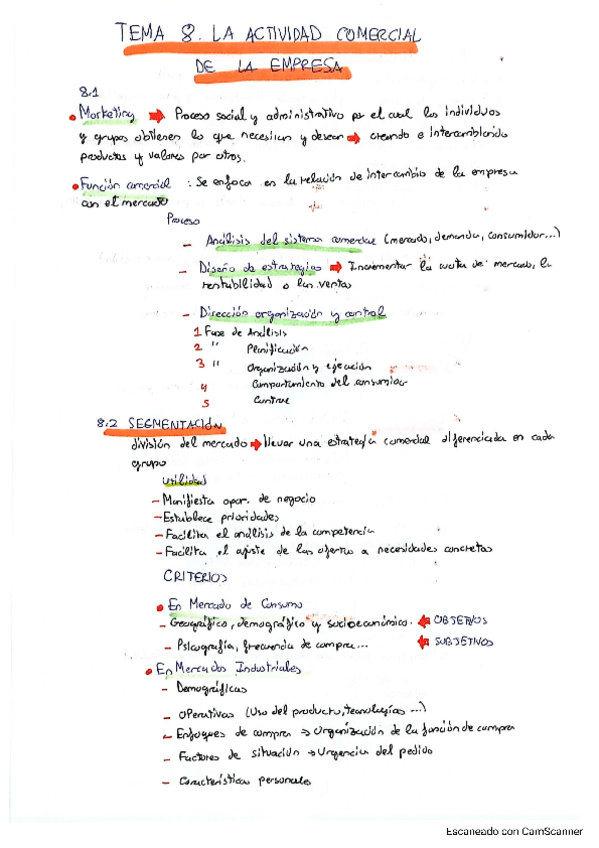 TEMA 8. LA ACTIVIDAD COMERCIAL
DE LA EMPRESA
8.1
• Marketing → Proceso social y administrativo por el cual los individuos
y grupos obtienen lo que necesitan y desean → creando e intercambiando
productos y valores por otros.
• Función comercial : Se enfoca en la relación de intercambio de la empresa
con el mercado
Proceso
- Análisis del sistema comercial (mercado, demanda, consumidor...)
- Diseño de estrategias → Incrementar la cuota de mercado, la
rentabilidad o las ventas
- Dirección organización y control
1 Fase de Análisis
2 " Planificación
3 " Organización y ejecución
4 Comportamiento del consumidor
5 Control
8.2 SEGMENTACIÓN
división del mercado → llevar una estrategia comercial diferenciada en cada
grupo
Utilidad
- Manifiesta opor. de negocio
- Establece prioridades
- Facilita el análisis de la competencia
- Facilita el ajuste de las ofertas a necesidades concretas
CRITERIOS
• En Mercado de Consumo
- Geográfico, demográfico y socioeconómico. ← OBJETIVOS
- Psicografía, frecuencia de compra... ← SUBJETIVOS
• En Mercados Industriales
- Demográficas
- Operativas (Uso del producto, tecnologías ...)
- Enfoques de compra → Organización de la función de compra
- Factores de situación → Urgencia del pedido
- Características personales
Escaneado con CamScanner